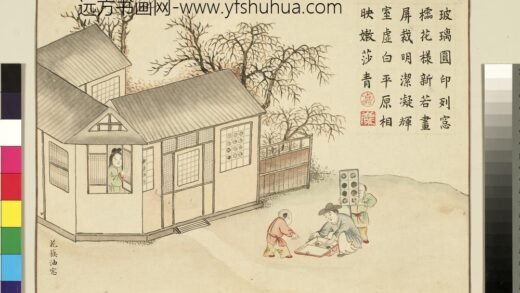 远方书画网-www.yfshuhua.com
玻璃圓印列窓
櫺花樣新若畫
屏裁明潔凝輝
室虛白平原相
映嫩莎青
花樣油窓